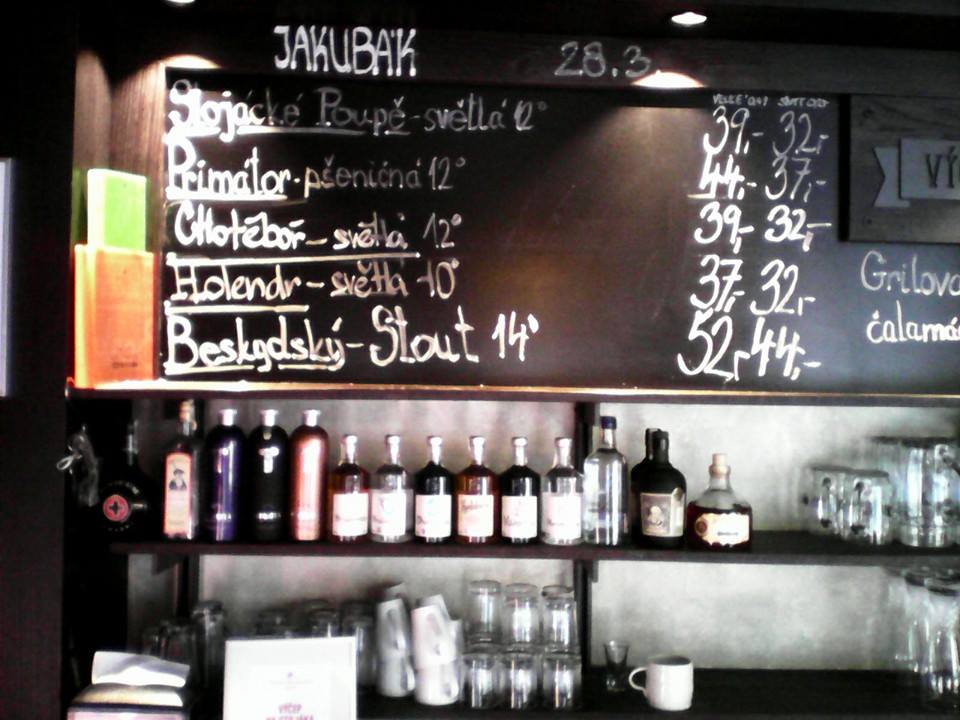 JAKUBÁK 28.3.
Slojácké Poupě - světlá 12° 39,- 32,-
Primátor - pšeničná 12° 44,- 37,-
CHotěboř - světlá 12° 39,- 32,-
Holendr - světlá 10° 37,- 32,-
Beskydský - Stout 14° 52,- 44,-
VÝ
Grilova
čalamá
VÝČEP